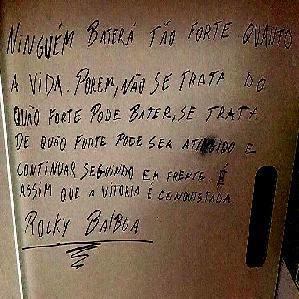 NINGUÉM BATERÁ TÃO FORTE QUANTO
A VIDA. PORÉM, NÃO SE TRATA DO
QUÃO FORTE PODE BATER, SE TRATA
DE QUÃO FORTE PODE SER ATINGIDO E
CONTINUAR SEGUINDO EM FRENTE. É
ASSIM QUE A VITÓRIA É CONQUISTADA
ROCKY BALBOA